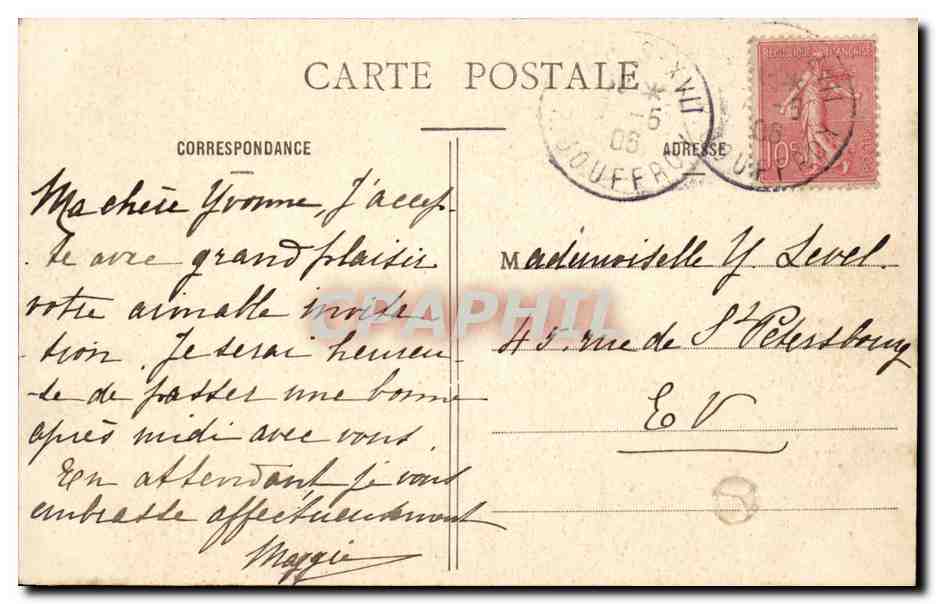 CARTE POSTALE
CORRESPONDANCE
ADRESSE
REPUBLIQUE FRANÇAISE
10c
XVII
-5
06
JOUFFROY
Ma chère Yvonne, J'accep-
te avec grand plaisir
votre aimable invita-
tion. Je serai heureu-
-se de passer une bonne
après midi avec vous.
En attendant je vous
embrasse affectueusement
Maggie
Mademoiselle Y. Level.
45, rue de St Petersbourg
E V
CPAPHIL